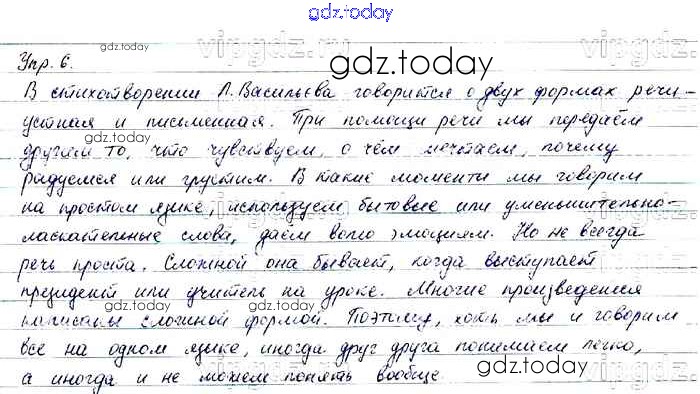 gdz.today
vipgdz.ru
Упр. 6.
gdz.today
gdz.today
В стихотворении Л. Васильева говорится о двух формах речи -
устная и письменная. При помощи речи мы передаём
gdz.today
другим то, что чувствуем, о чём мечтаем, почему
радуемся или грустим. В такие моменты мы говорим
на простом языке, используем бытовые или уменьшительно-
gdz.today
ласкательные слова, даём волю эмоциям. Но не всегда
речь проста. Сложной она бывает, когда выступает
президент или учитель на уроке. Многие произведения
gdz.today
написаны сложной формой. Поэтому, хоть мы и говорим
все на одном языке, иногда друг друга понимаем легко,
gdz.today
а иногда и не можем понять вообще
gdz.today